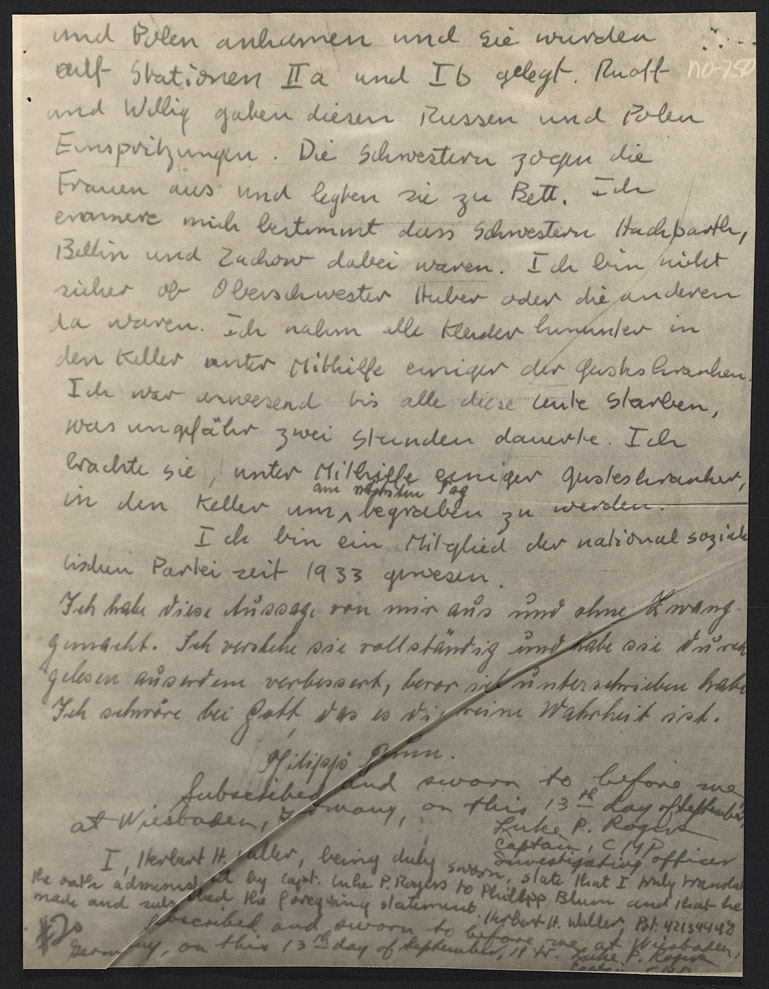 und Polen ankamen und sie wurden
auf Stationen IIa und Ib gelegt. Ruoff
NO-750
und Willig gaben diesen Russen und Polen
Einspritzungen. Die Schwestern zogen die
Frauen aus und legten sie zu Bett. Ich
erinnere mich bestimmt dass Schwestern Hackbarth,
Bellin und Zachow dabei waren. Ich bin nicht
sicher ob Oberschwester Huber oder die anderen
da waren. Ich nahm alle Kleider hinunter in
den Keller unter Mithilfe einiger der Geisteskranken.
Ich war anwesend bis alle diese Leute starben,
was ungefähr zwei Stunden dauerte. Ich
brachte sie, unter Mithilfe einiger Geisteskranker,
am nächsten Tag
in den Keller um begraben zu werden.
Ich bin ein Mitglied der national sozial
istischen Partei seit 1933 gewesen.
Ich habe diese Aussage von mir aus und ohne Zwang
gemacht. Ich verstehe sie vollständig und habe sie durch
gelesen auserdem verbessert, bevor ich unterschrieben habe
Ich schwöre bei Gott, das es die reine Wahrheit ist.
Philipp Blum.
Subscribed and sworn to before me
at Wiesbaden, Germany, on this 13th day of September,
Luke P. Rogers
Captain, CMP
Investigating officer
I, Herbert H. Waller, being duly sworn, state that I truly translated
the oath administered by Capt. Luke P. Rogers to Phillip Blum and that he
made and subscribed the foregoing statement. Herbert H. Waller, Pvt.
Subscribed and sworn to before me at Wiesbaden,
Germany, on this 13th day of September, Luke P. Rogers
Captain, CMP